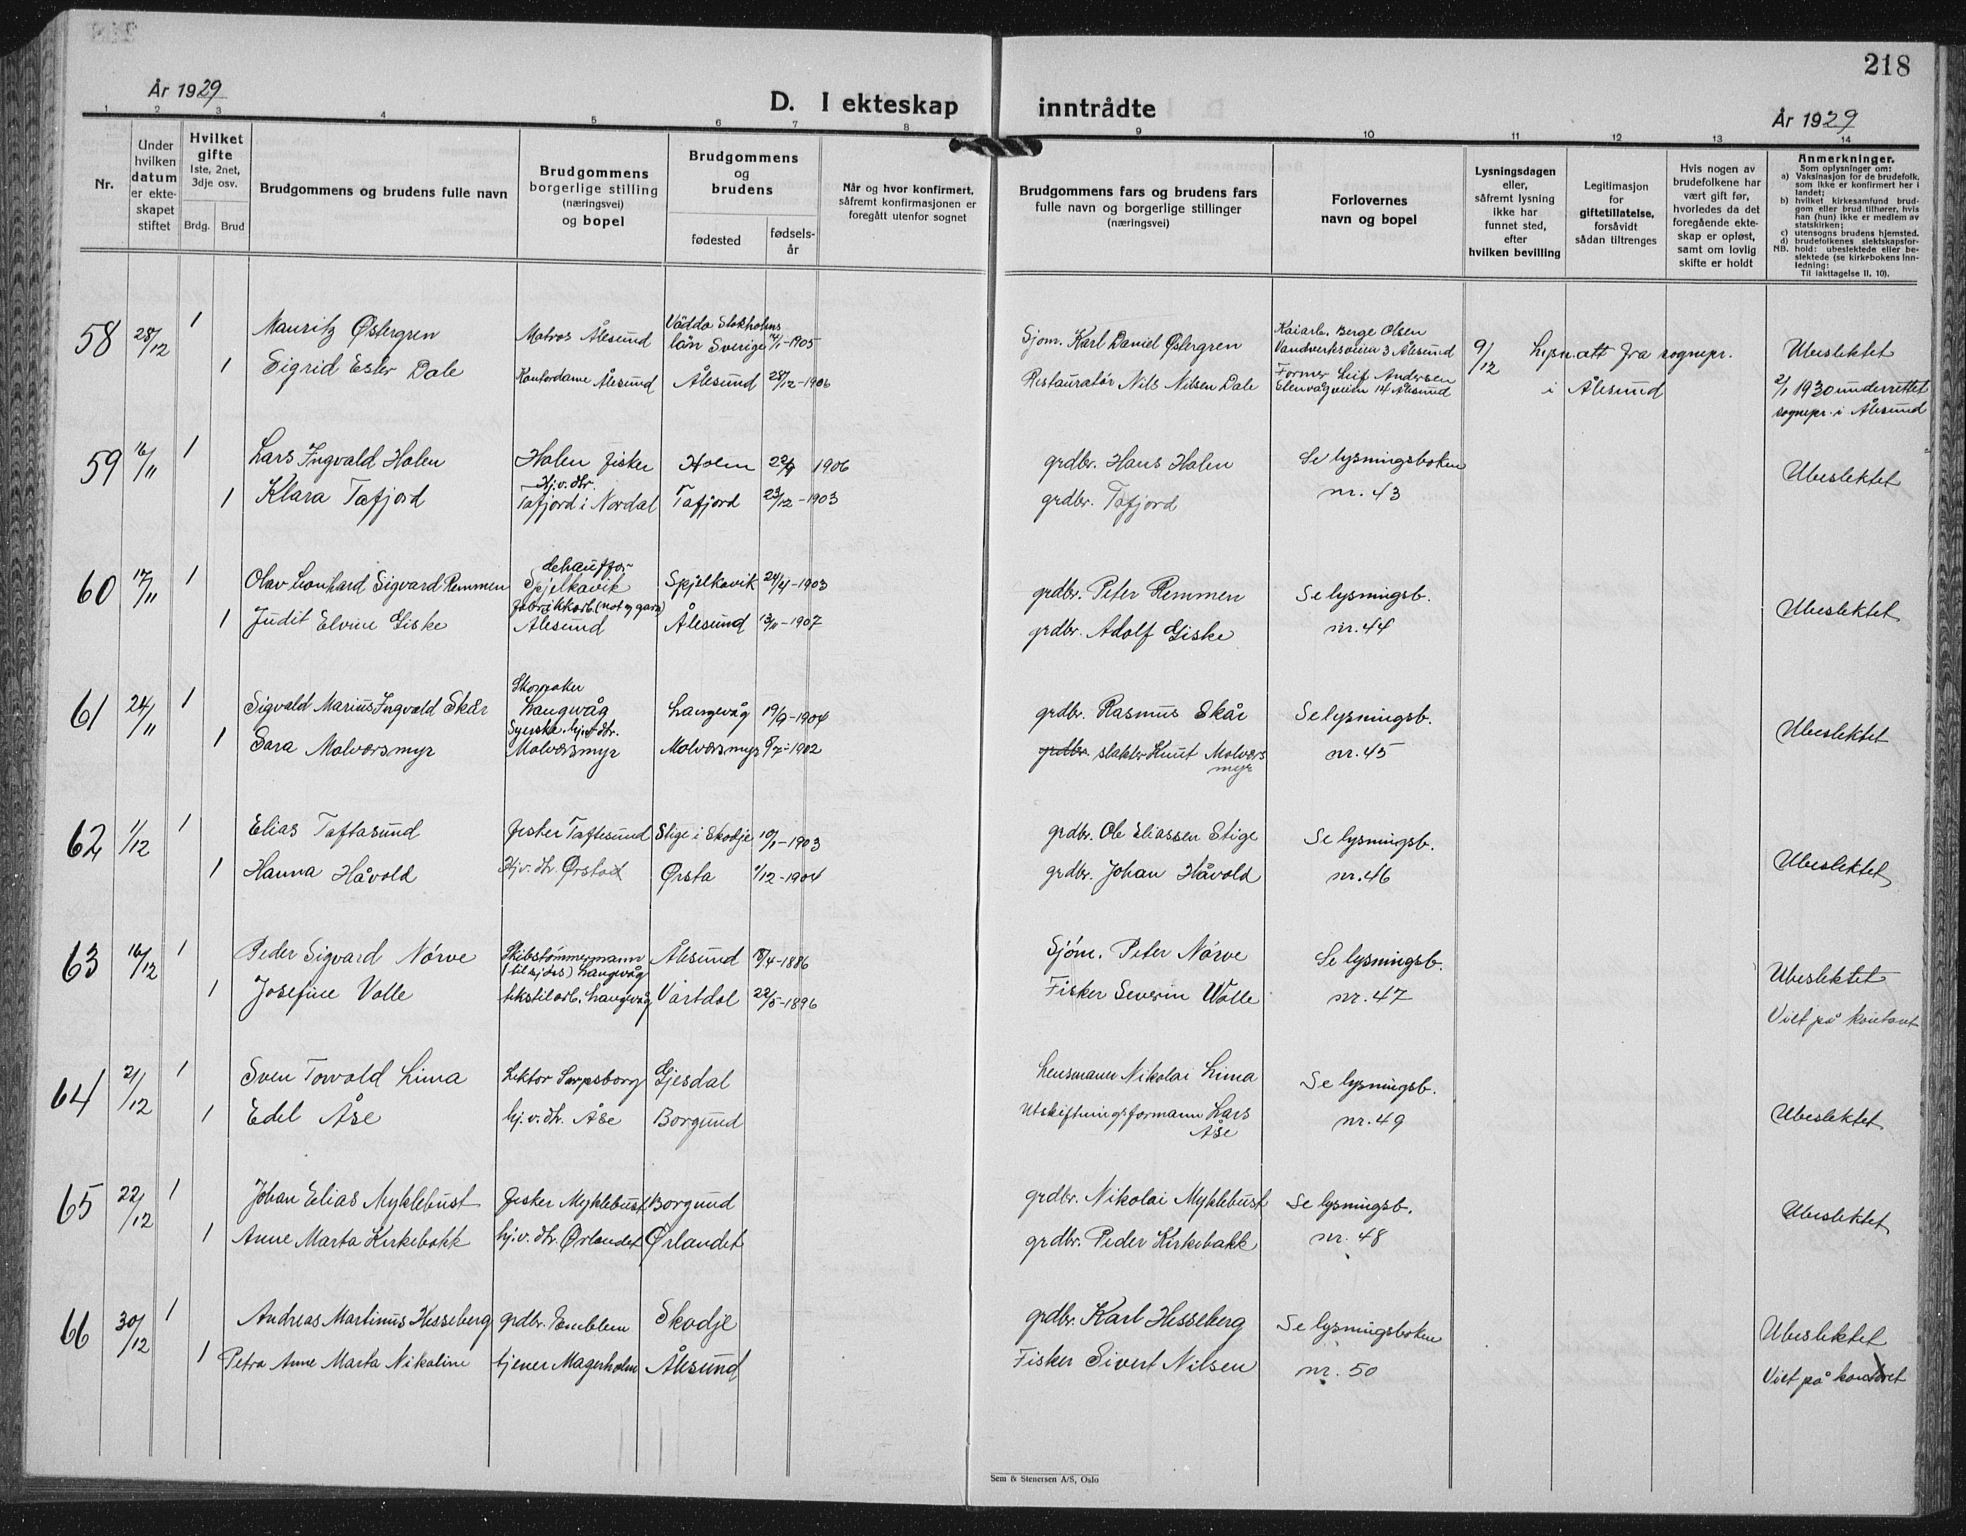 218
År 1929
D. I ekteskap inntrådte
År 1929
1 2 3 4 5 6 7 8 9 10 11 12 13 14
Nr.
Under hvilken datum er ekteskapet stiftet
Hvilket gifte
1ste, 2net, 3dje osv.
Brdg. Brud
Brudgommens og brudens fulle navn
Brudgommens borgerlige stilling (næringsvei) og bopel
Brudgommens og brudens
fødested
fødselsår
Når og hvor konfirmert, såfremt konfirmasjonen er foregått utenfor sognet
Brudgommens fars og brudens fars fulle navn og borgerlige stillinger (næringsvei)
Forlovernes navn og bopel
Lysningsdagen eller, såfremt lysning ikke har funnet sted, efter hvilken bevilling
Legitimasjon for giftetillatelse, forsåvidt sådan tiltrenges
Hvis nogen av brudefolkene har vært gift før, hvorledes da det foregående ekteskap er opløst, samt om lovlig skifte er holdt
Anmerkninger.
Som oplysninger om:
a) Vaksinasjon for de brudefolk, som ikke er konfirmert her i landet;
b) hvilket kirkesamfund brudgom eller brud tilhører, hvis han (hun) ikke er medlem av statskirken;
c) utensogns brudens hjemsted.
d) brudefolkenes slektskapsforhold: ubeslektede eller beslektede (se kirkebokens Innledning:
NB.
Til iakttagelse II, 10).
58 28/12 1 Mauritz Østergren Matros Ålesund Väddo Stokholms län Sverige 1905 Sjøm. Karl Daniel Østergren Kaiarb. Berge Olsen Vandverksveien 3 Ålesund 9/12 lysn.att fra sognepr. Ubeslektet
1 Sigrid Ester Dale Kontordame Ålesund Ålesund 28/12-1906 Restauratør Nils Nilsen Dale Former Leif Andersen Elenvågveien 14 Ålesund i Ålesund 2/1 1930 underrettet sognepr. i Ålesund
59 16/11 1 Lars Ingvald Holen Holen fisker Holen 1906 grdbr. Hans Holen Se lysningsboken Ubeslektet
1 Klara Tafjord Hj.v. dtr. Tafjord i Nordal Tafjord 23/12-1903 grdbr. Tafjord nr. 43
60 17/11 1 Olav Leonhard Sigvard Remmen Spjelkavik Spjelkavik 24/4-1903 grdbr. Peter Remmen Se lysningsb. Ubeslektet
1 Judit Elvine Giske fabrikkarb. (not og garn) Ålesund Ålesund 13/11-1907 grdbr. Adolf Giske nr. 44
61 24/11 1 Sigvald Marius Ingvald Skår Skomaker Langevåg Langevåg 19/9-1904 grdbr. Rasmus Skår Se lysningsb. Ubeslektet
1 Sara Molværsmyr Syerske. hj.v. dtr. Molværsmyr Molværsmyr 8/7-1902 grdbr. slakter Knut Molværsmyr nr. 45
62 1/12 1 Elias Taftasund fisker Taftesund Stige i Skodje 10/1-1903 grdbr. Ole Eliassen Stige Se lysningsb. Ubeslektet
1 Hanna Håvold Hj.v. dtr. Ørsta Ørsta /12-1904 grdbr. Johan Håvold nr. 46
63 16/12 1 Peder Sigvard Nørve Skibstømmermann (tilsjøs) Langevåg Ålesund 8/4-1886 Sjøm. Peter Nørve Se lysningsb. Ubeslektet
1 Josefine Volle tekstilarb. Langevåg Vartdal 22/5-1896 Fisker Severin Wolle nr. 47 Viet på kontoret
64 21/12 1 Sven Torvald Lima Lektor Sarpsborg Gjesdal Lensmann Nikolai Lima Se lysningsb. Ubeslektet
1 Edel Åse hj.v. dtr. Åse Borgund Utskiftningsformann Lars Åse nr. 49
65 22/12 1 Johan Elias Myklebust fisker Myklebust Borgund grdbr. Nikolai Myklebust Se lysningsb. Ubeslektet
1 Anne Marta Kirkebakk hj.v. dtr. Ørlandet Ørlandet grdbr. Peder Kirkebakk nr. 48
66 30/12 1 Andreas Martinus Hesseberg grdbr. Emblem Skodje grdbr. Karl Hesseberg Se lysningsboken Ubeslektet
1 Petra Anne Marta Nikoline tjener Magerholm Ålesund Fisker Sivert Nilsen nr. 50 Viet på kontoret
Sem & Stenersen A/S, Oslo